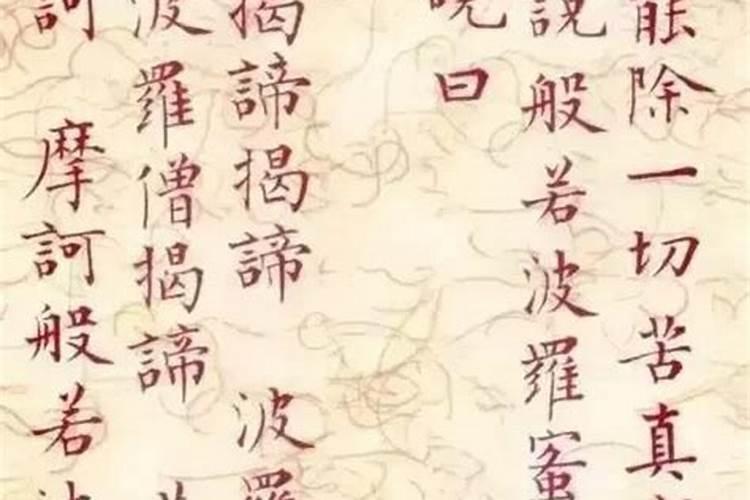 能除一切苦真
說般若波羅蜜
呪曰
揭諦揭諦 波羅
波羅僧揭諦
訶 摩訶般若波